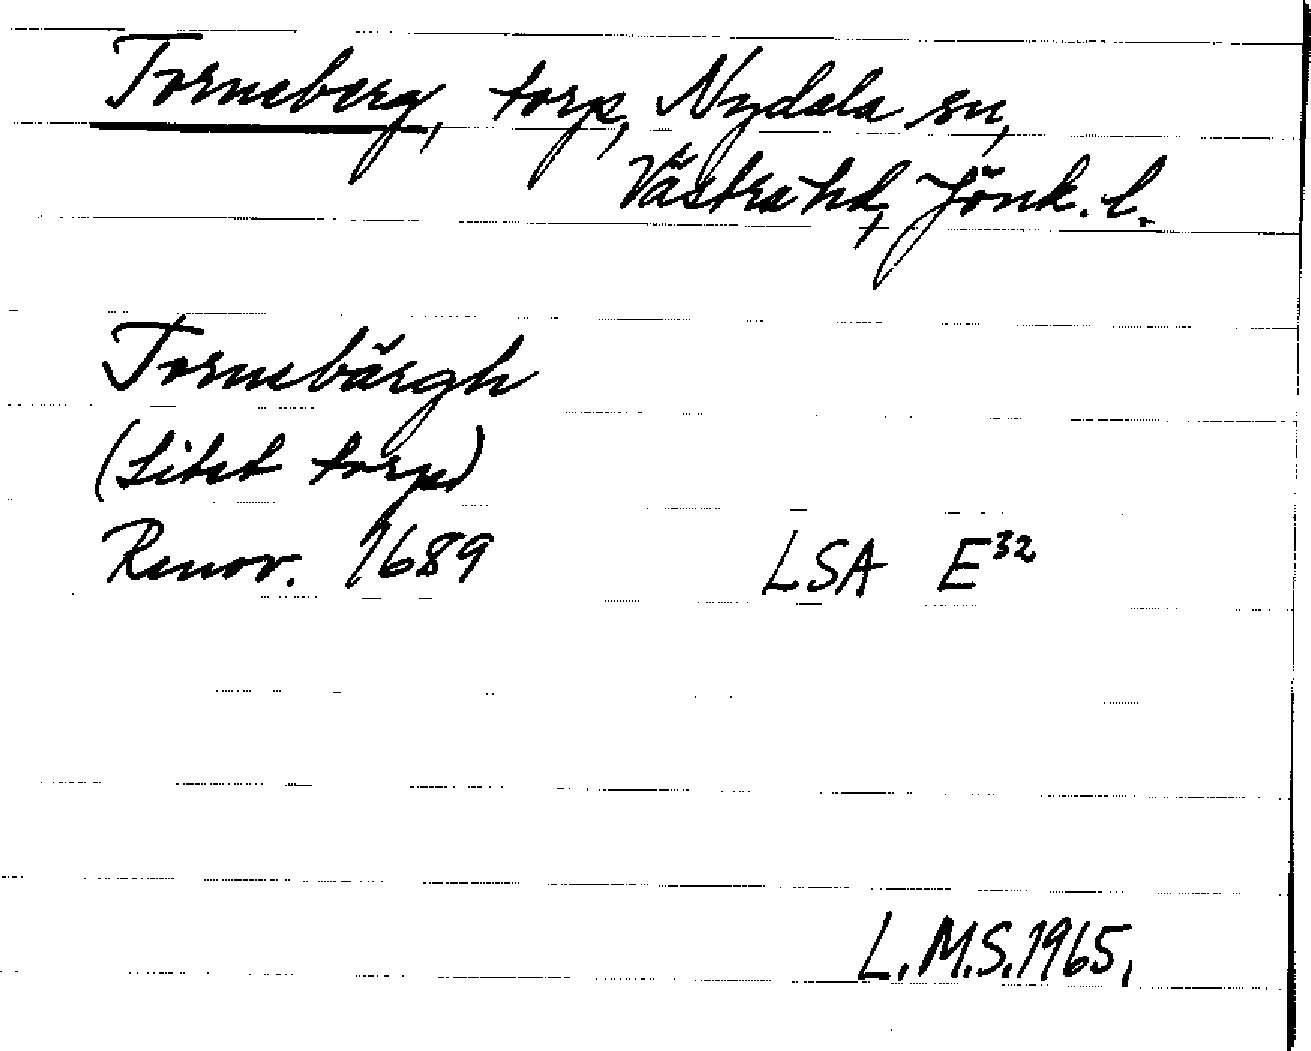 Torneberg, torp, Nydala sn,
Västra hd, Jönk. l.
Tornebärgh
(Litet torp)
Renov. 1689 LSA E32
L.M.S. 1965.